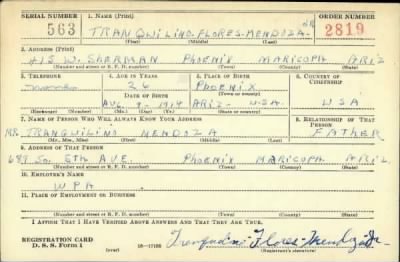 SERIAL NUMBER 1. NAME (Print) ORDER NUMBER
563 TRANQWILINO. FLORES. MENDOZA. JR 2819
(First) (Middle) (Last)
2. ADDRESS (Print)
415 W. SHERMAN PHOENIX MARICOPA ARIZ
(Number and street or R. F. D. number) (Town) (County) (State)
3. TELEPHONE 4. AGE IN YEARS 5. PLACE OF BIRTH 6. COUNTRY OF CITIZENSHIP
26 PHOENIX
DATE OF BIRTH (Town or county)
AUG. 9-1914 ARIZ- U.S.A. USA
(Exchange) (Number) (Mo.) (Day) (Yr.) (State or country)
7. NAME OF PERSON WHO WILL ALWAYS KNOW YOUR ADDRESS 8. RELATIONSHIP OF THAT PERSON
MR. TRANQWILINO MENDOZA FATHER
(Mr., Mrs., Miss) (First) (Middle) (Last)
9. ADDRESS OF THAT PERSON
689 SO. 5TH AVE. PHOENIX MARICOPA ARIZ
(Number and street or R. F. D. number) (Town) (County) (State)
10. EMPLOYER'S NAME
WPA
11. PLACE OF EMPLOYMENT OR BUSINESS
(Number and street or R. F. D. number) (Town) (County) (State)
I AFFIRM THAT I HAVE VERIFIED ABOVE ANSWERS AND THAT THEY ARE TRUE.
REGISTRATION CARD
D. S. S. Form 1 (over) 16-17105 Flores Mendoza Jr-
(Registrant's signature)